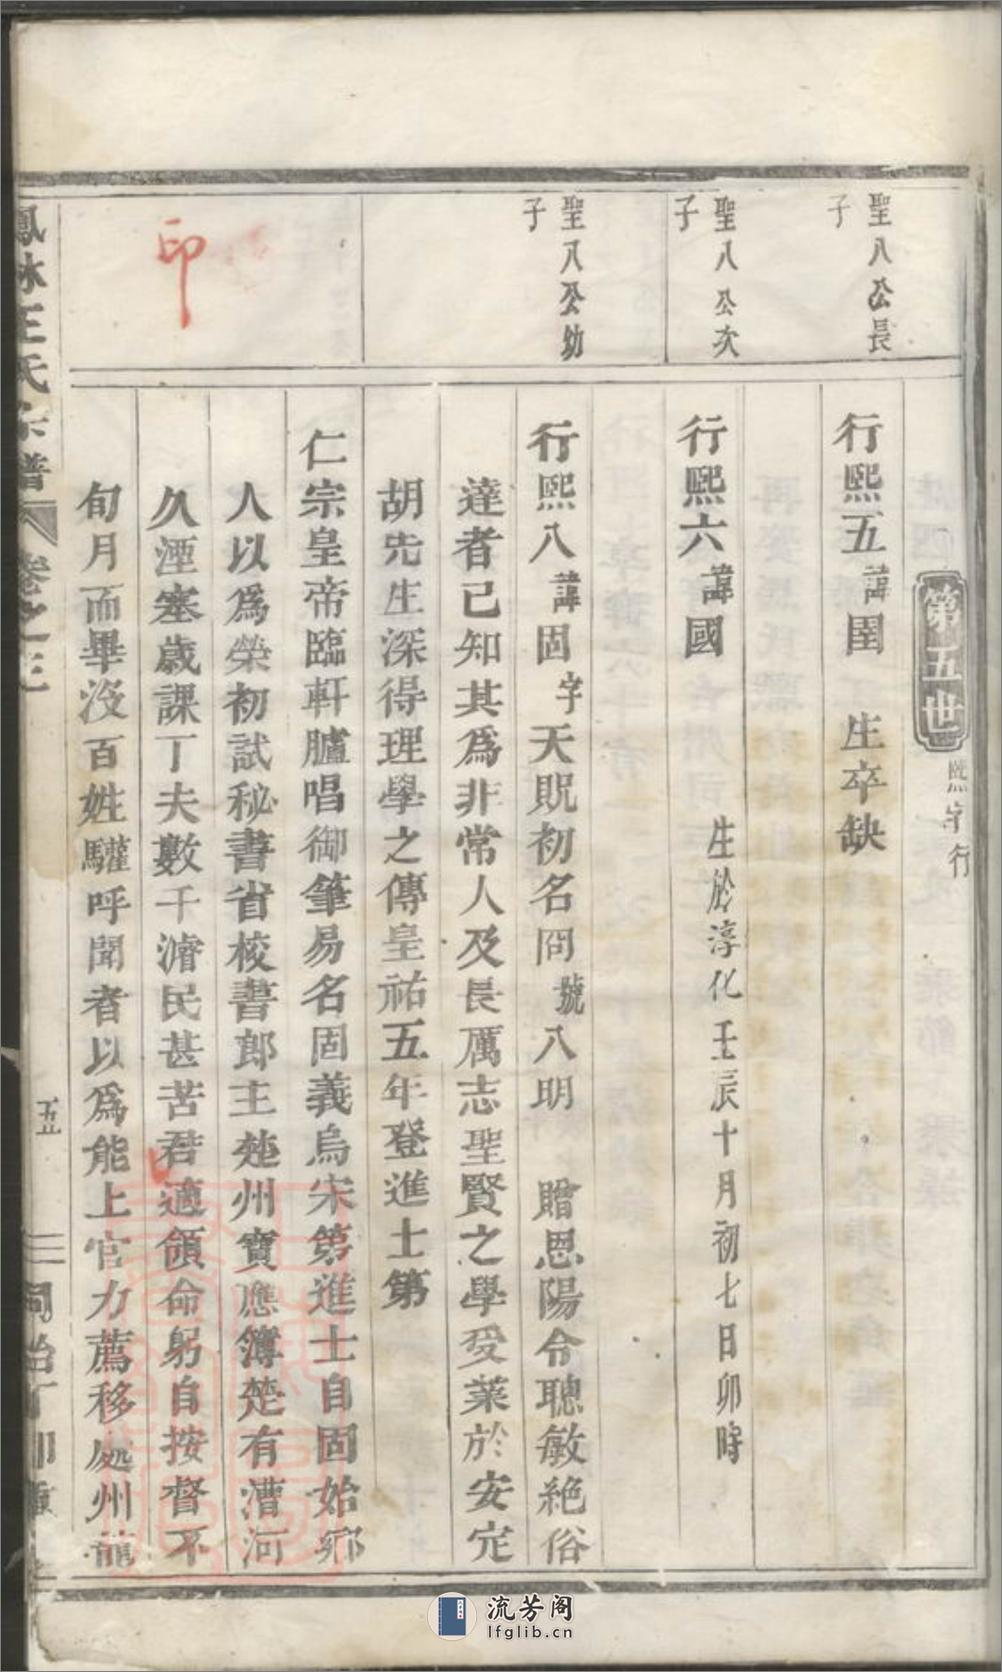 第五世 熙字行
聖八公長子
行熙五諱圉 生卒缺
聖八公次子
行熙六諱國 生於淳化壬辰十月初七日卯時
聖八公幼子
行熙八諱固字天貺初名冏號八明 贈恩陽令聰敏絶俗
達者已知其爲非常人及長厲志聖賢之學受業於安定
胡先生深得理學之傳皇祐五年登進士第
仁宗皇帝臨軒臚唱御筆易名固義烏宋第進士自固始鄉
人以爲榮初試秘書省校書郎主楚州寶應簿楚有漕河
久湮塞歳課丁夫數千濬民甚苦君適領命躬自按督不
旬月而畢没百姓驩呼聞者以爲能上官力薦移處州龍
鳳林王氏宗譜 卷之三
五
同治丁卯重
印
流芳阁
lfglib.cn